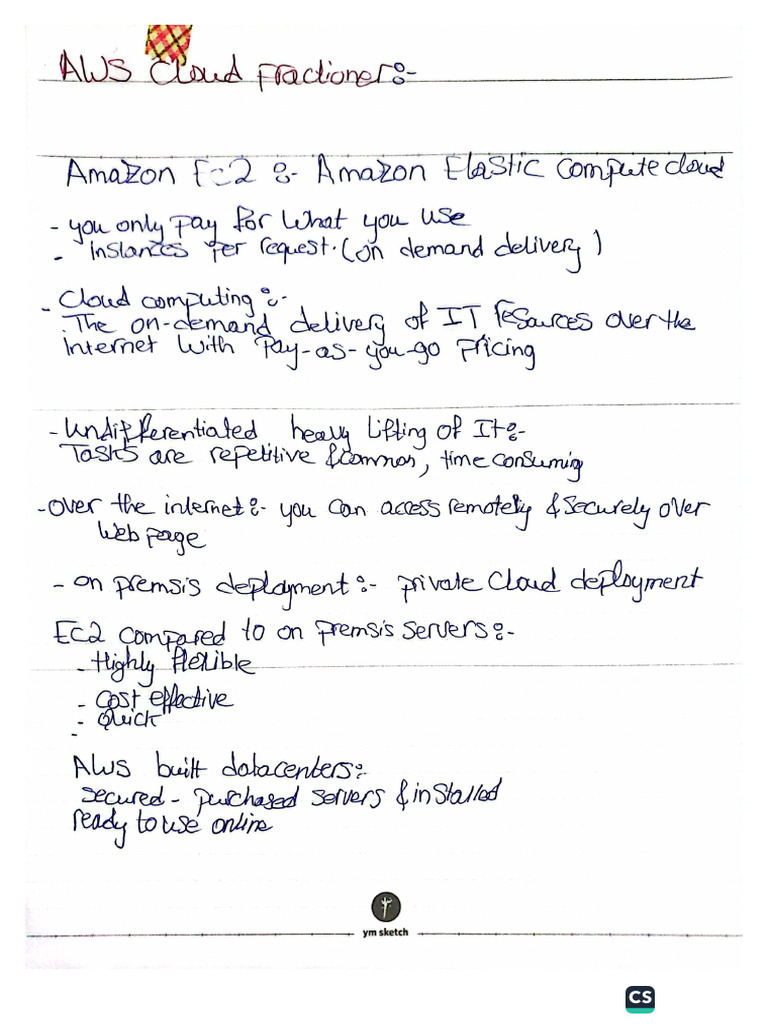 AWS Cloud Practioner:-
Amazon EC2 :- Amazon Elastic Compute cloud
- you only Pay for What you use
- instances Per request. (on demand delivery)
- Cloud computing :-
. The on-demand delivery of IT resources over the
internet with Pay-as-you-go Pricing
- Undifferentiated heavy Lifting of It:-
Tasks are repetitive & common, time consuming
- over the internet:- you can access remotely & securely over
Web page
- on premsis deployment:- private Cloud deployment
EC2 compared to on premsis servers:-
- Highly flexible
- cost effective
- Quick
-
AWS built datacenters:-
secured - purchased servers & installed
ready to use online
ym sketch
CS